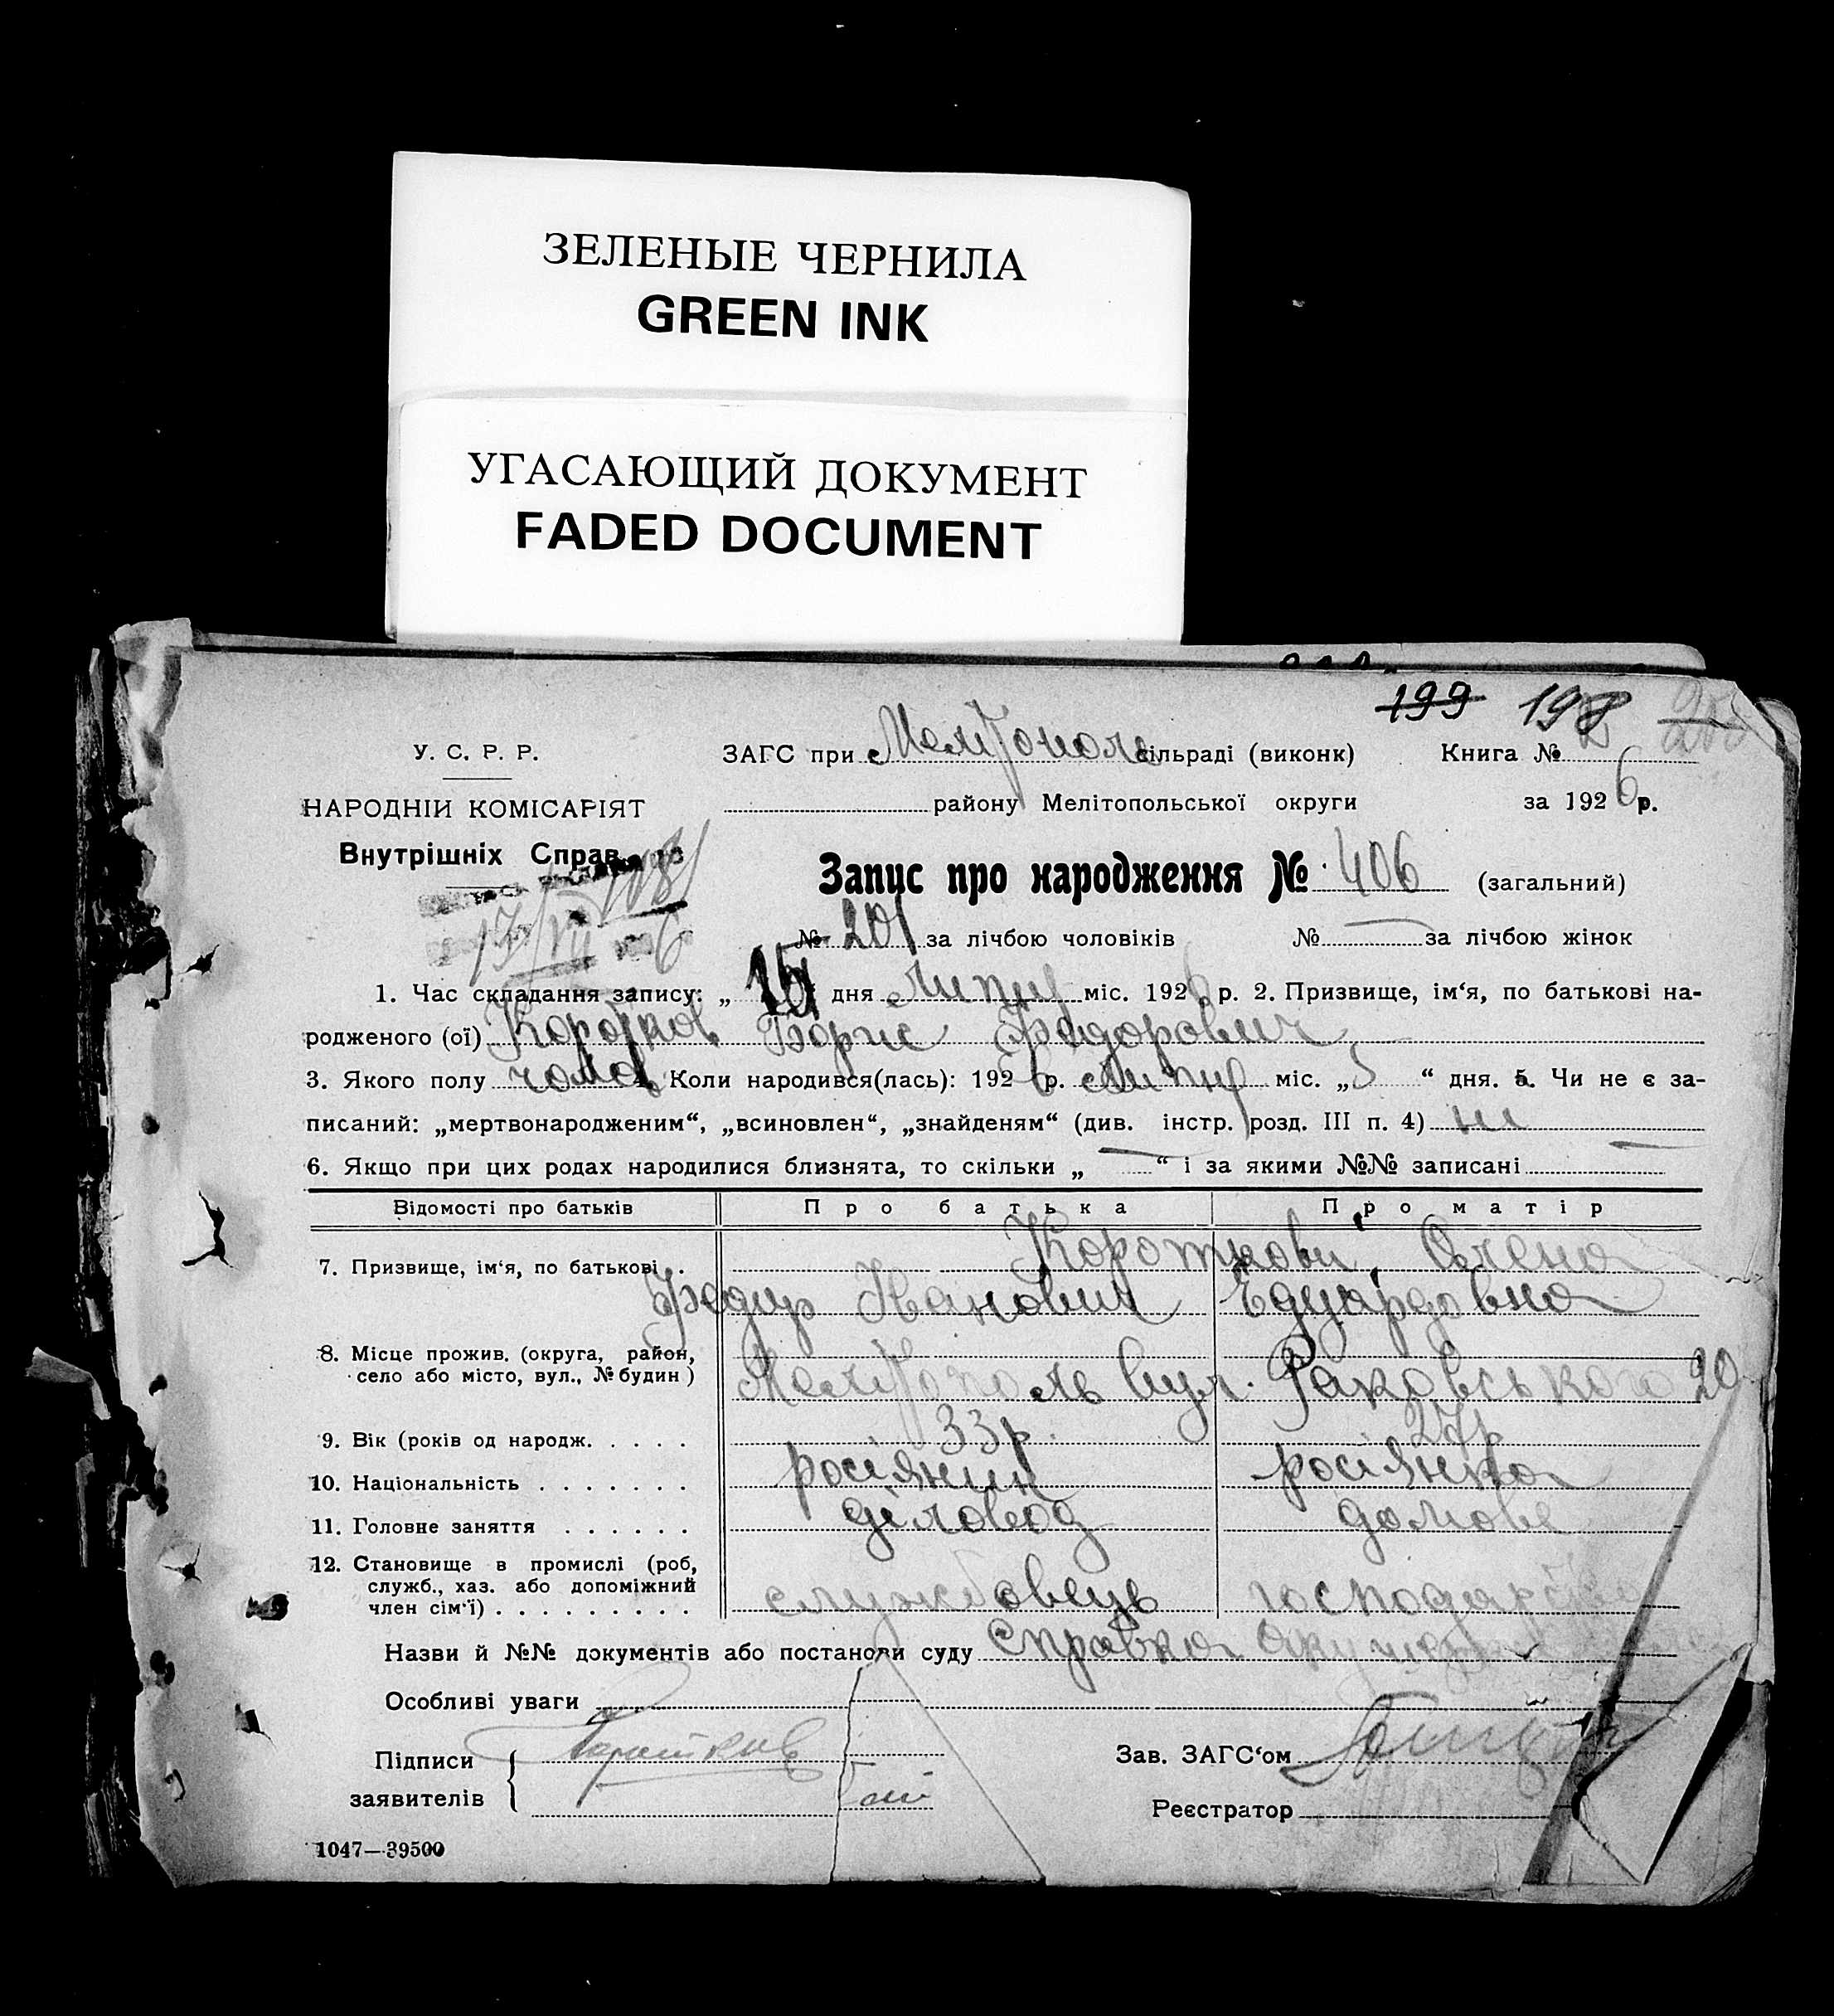 ЗЕЛЕНЫЕ ЧЕРНИЛА
GREEN INK
УГАСАЮЩИЙ ДОКУМЕНТ
FADED DOCUMENT
199 198
У. С. Р. Р. ЗАГС при Мелітополь сільраді (виконк) Книга №
НАРОДНІЙ КОМІСАРІЯТ району Мелітопольської округи за 1926 р.
Внутрішніх Справ
Запис про народження № 406 (загальний)
17/VII 6
№ 201 за лічбою чоловіків № — за лічбою жінок
1. Час складання запису: „15“ дня липня міс. 1926 р. 2. Призвище, ім‘я, по батькові на-
родженого (ої) Коротков Борис Федорович
3. Якого полу чолов 4. Коли народився(лась): 1926 р. липня міс. „5“ дня. 5. Чи не є за-
писаний: „мертвонародженим“, „всиновлен“, „знайденям“ (див. інстр. розд. III п. 4) ні
6. Якщо при цих родах народилися близнята, то скільки „—“ і за якими №№ записані —
Відомості про батьків Про батька Про матір
7. Призвище, ім‘я, по батькові . Короткови Олена
Федір Іванович Едуардовна
8. Місце прожив. (округа, район,
село або місто, вул., № будин) Мелітополь вул. Раковського 20
9. Вік (років од народж. . . . . 33 р. 27 р
10. Національність . . . . . . . росіянин росіянка
11. Головне заняття . . . . . . діловод домове
12. Становище в промислі (роб,
служб., хаз. або допоміжний
член сім‘ї) . . . . . . . . . службовець господарство
Назви й №№ документів або постанови суду Справка
Особливі уваги
Підписи Коротков Зав. ЗАГС‘ом
заявителів Реєстратор
1047—39500